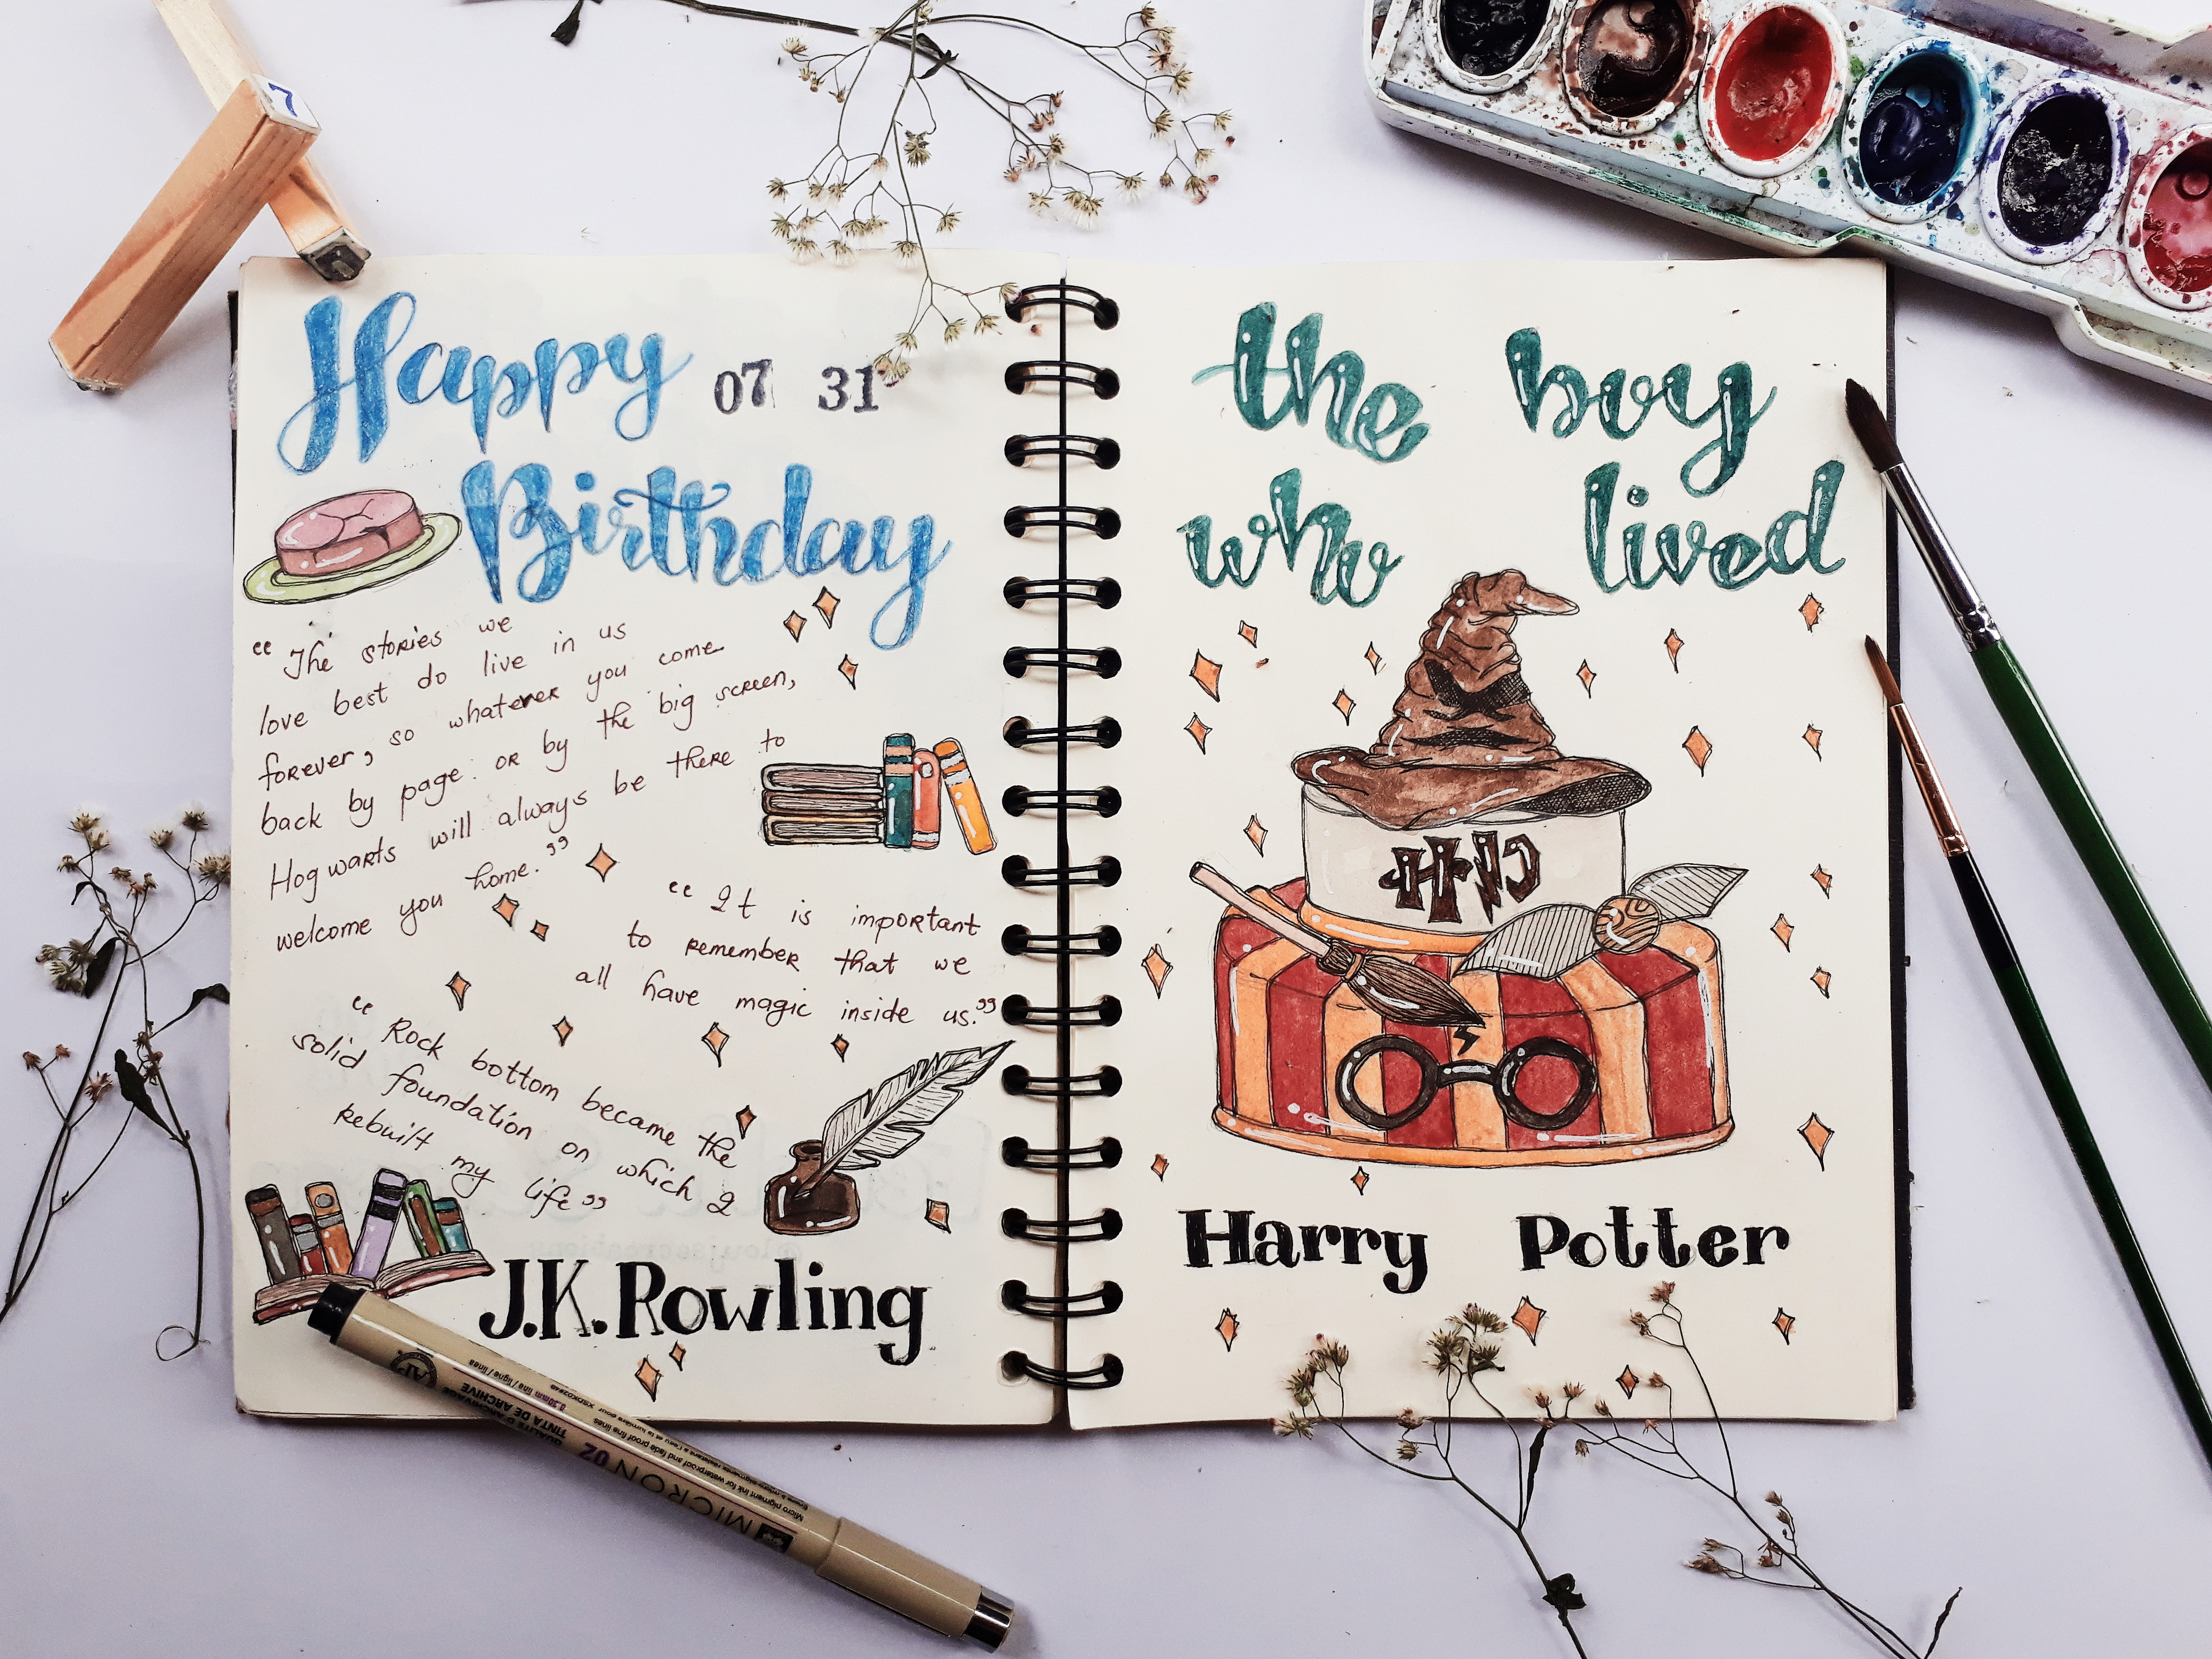 7
Happy
07 31
Birthday
“The stories we
love best do live in us
forever, so whatever you come
back by page or by the big screen,
Hogwarts will always be there to
welcome you home.”
“It is important
to remember that we
all have magic inside us.”
“Rock bottom became the
solid foundation on which I
rebuilt my life”
J.K. Rowling
MICRON 02
TINTA DE ARCHIVE
the boy
who lived
Harry Potter